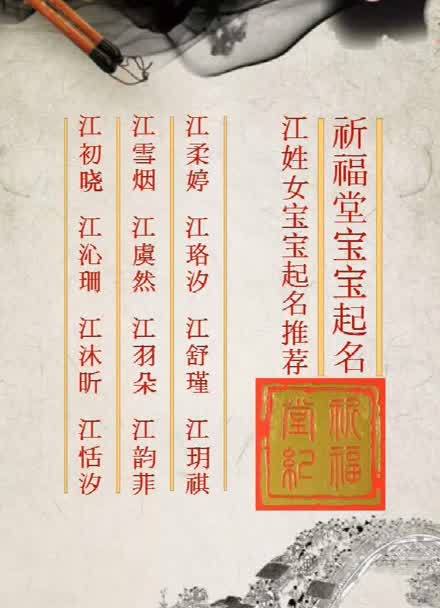 祈福堂宝宝起名
江姓女宝宝起名推荐
祈福
堂紀
江柔婷 江珞汐 江舒瑾 江玥祺
江雪烟 江虞然 江羽朵 江韵菲
江初晓 江沁珊 江沐昕 江恬汐